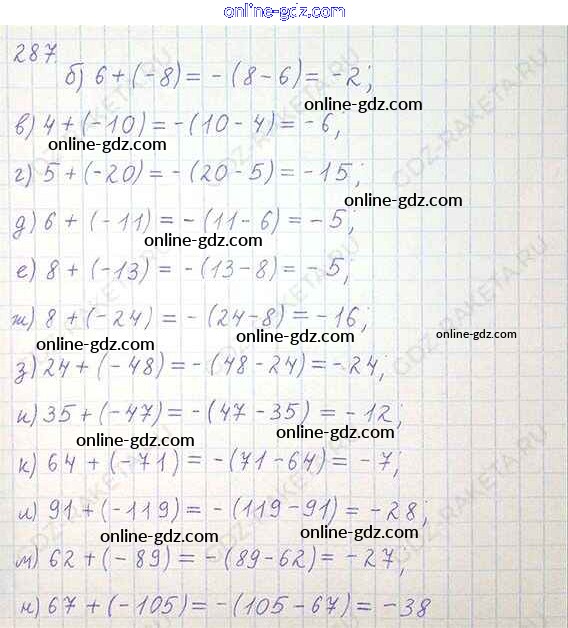 online-gdz.com
287.
б) 6 + (-8) = -(8-6) = -2;
online-gdz.com
в) 4 + (-10) = -(10-4) = -6;
online-gdz.com
г) 5 + (-20) = -(20-5) = -15;
online-gdz.com
д) 6 + (-11) = -(11-6) = -5;
online-gdz.com
е) 8 + (-13) = -(13-8) = -5;
online-gdz.com
ж) 8 + (-24) = -(24-8) = -16;
online-gdz.com online-gdz.com
з) 24 + (-48) = -(48-24) = -24;
и) 35 + (-47) = -(47-35) = -12;
online-gdz.com online-gdz.com
к) 64 + (-71) = -(71-64) = -7;
л) 91 + (-119) = -(119-91) = -28;
online-gdz.com online-gdz.com
м) 62 + (-89) = -(89-62) = -27;
н) 67 + (-105) = -(105-67) = -38
GDZ-RAKETA.RU
GDZ-RAKETA.RU
GDZ-RAKETA.RU
GDZ-RAKETA.RU